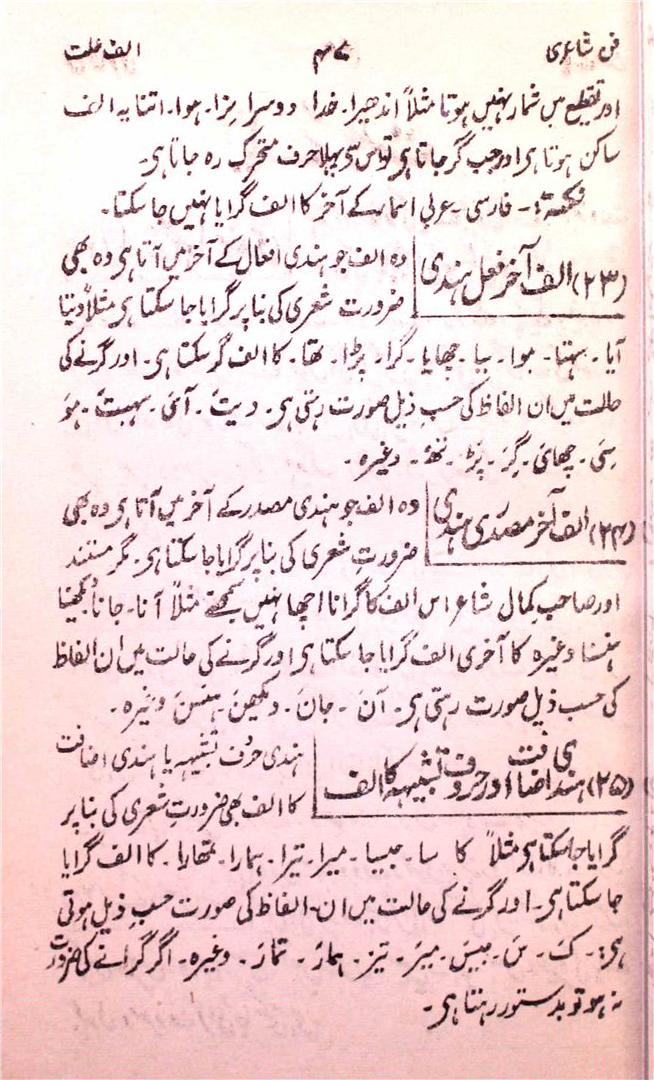 فن شاعری ۴۷ الف علت
اور تقطیع میں شمار نہیں ہوتا مثلاً اندھیرا۔ خدا۔ دوسرا۔ مزا۔ ہوا۔ اتنا یہ الف
ساکن ہوتا ہی اور جب گر جاتا ہی تو اس سی پہلا حرف متحرک رہ جاتا ہی۔
نکتہ:۔ فارسی۔ عربی اسماء کے آخر کا الف گرایا نہیں جا سکتا۔
(۲۳) الف آخر فعل ہندی
وہ الف جو ہندی افعال کے آخر میں آتا ہی وہ بھی
ضرورت شعری کی بنا پر گرایا جا سکتا ہی مثلاً دیتا
آیا۔ بہتا۔ ہوا۔ بیا۔ چھایا۔ گرا۔ پڑا۔ تھا۔ کا الف گر سکتا ہی۔ اور گرنے کی
حالت میں ان الفاظ کی حسب ذیل صورت رہتی ہی۔ دیتَ۔ آئَ۔ بہتَ۔ ہوَ
سیَ۔ چھائَ۔ گِرَ۔ پڑَ۔ تھَ۔ وغیرہ۔
(۲۴) الف آخر مصدری ہندی
وہ الف جو ہندی مصدر کے آخر میں آتا ہی وہ بھی
ضرورتِ شعری کی بنا پر گرایا جا سکتا ہی۔ مگر مستند
اور صاحب کمال شاعر اس الف کا گرانا اچھا نہیں سمجھتے مثلاً آنا۔ جانا۔ دیکھنا
ہنسنا وغیرہ کا آخری الف گرایا جا سکتا ہی اور گرنے کی حالت میں ان الفاظ
کی حسب ذیل صورت رہتی ہی۔ آنَ۔ جانَ۔ دیکھنَ۔ ہنسنَ وغیرہ۔
(۲۵) ہندی اضافت اور حروف تشبیہہ کا الف
ہندی حرُوف تشبیہہ یا ہندی اضافت
کا الف بھی ضرورتِ شعری کی بنا پر
گرایا جا سکتا ہی مثلاً کا سا۔ جیسا۔ میرا۔ تیرا۔ ہمارا۔ تمھارا۔ کا الف گرایا
جا سکتا ہی۔ اور گرنے کی حالت میں ان الفاظ کی صورت حسبِ ذیل ہوتی
ہی:۔ کَ۔ سَ۔ جیسَ۔ میرَ۔ تیرَ۔ ہمارَ۔ تمارَ۔ وغیرہ۔ اگر گرانے کی ضرورت
نہ ہو تو بدستور رہتا ہی۔